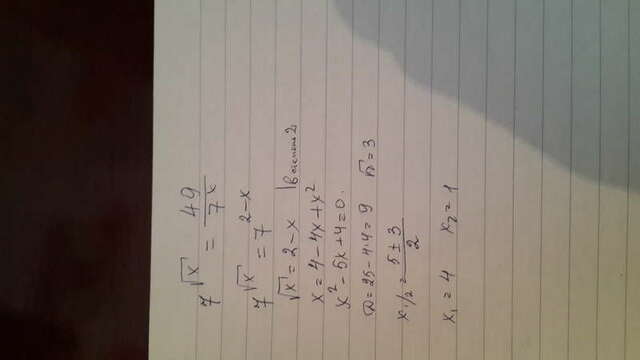 7^√x = 49/7^x
7^√x = 7^2-x
√x = 2-x | в степень 2
x = 4-4x+x²
x² - 5x+4=0.
D=25-4·4=9 √D=3
x₁/₂ = 5±3/2
x₁ = 4 x₂ = 1